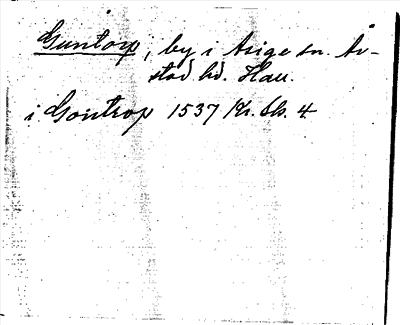 Guntorp, by i Asige sn. År-
stad hd. Hall.
i Gontrop 1537 Kr. Sk. 4